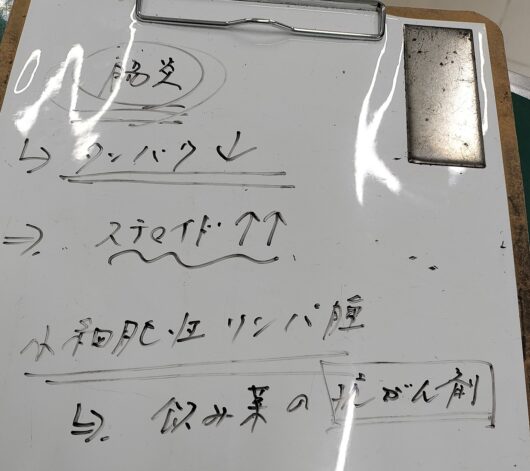 腸炎
↳ タンパク↓
⇒ ステロイド↑↑
小細胞性リンパ腫
↳ 飲み薬の抗がん剤